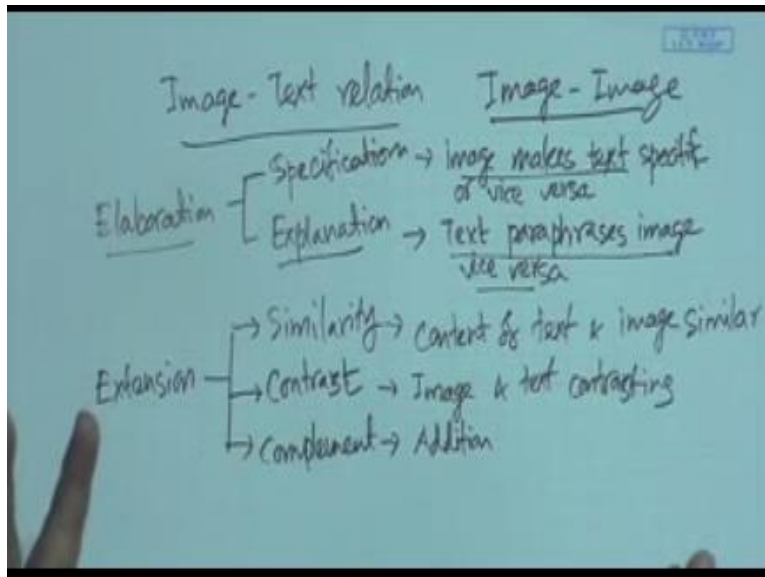 Image - Text relation Image - Image
Elaboration
Specification → image makes text specific
or vice versa
Explanation → Text paraphrases image
vice versa
Extension
→ Similarity → Content of text & image similar
→ Contrast → Image & text contrasting
→ Complement → Addition